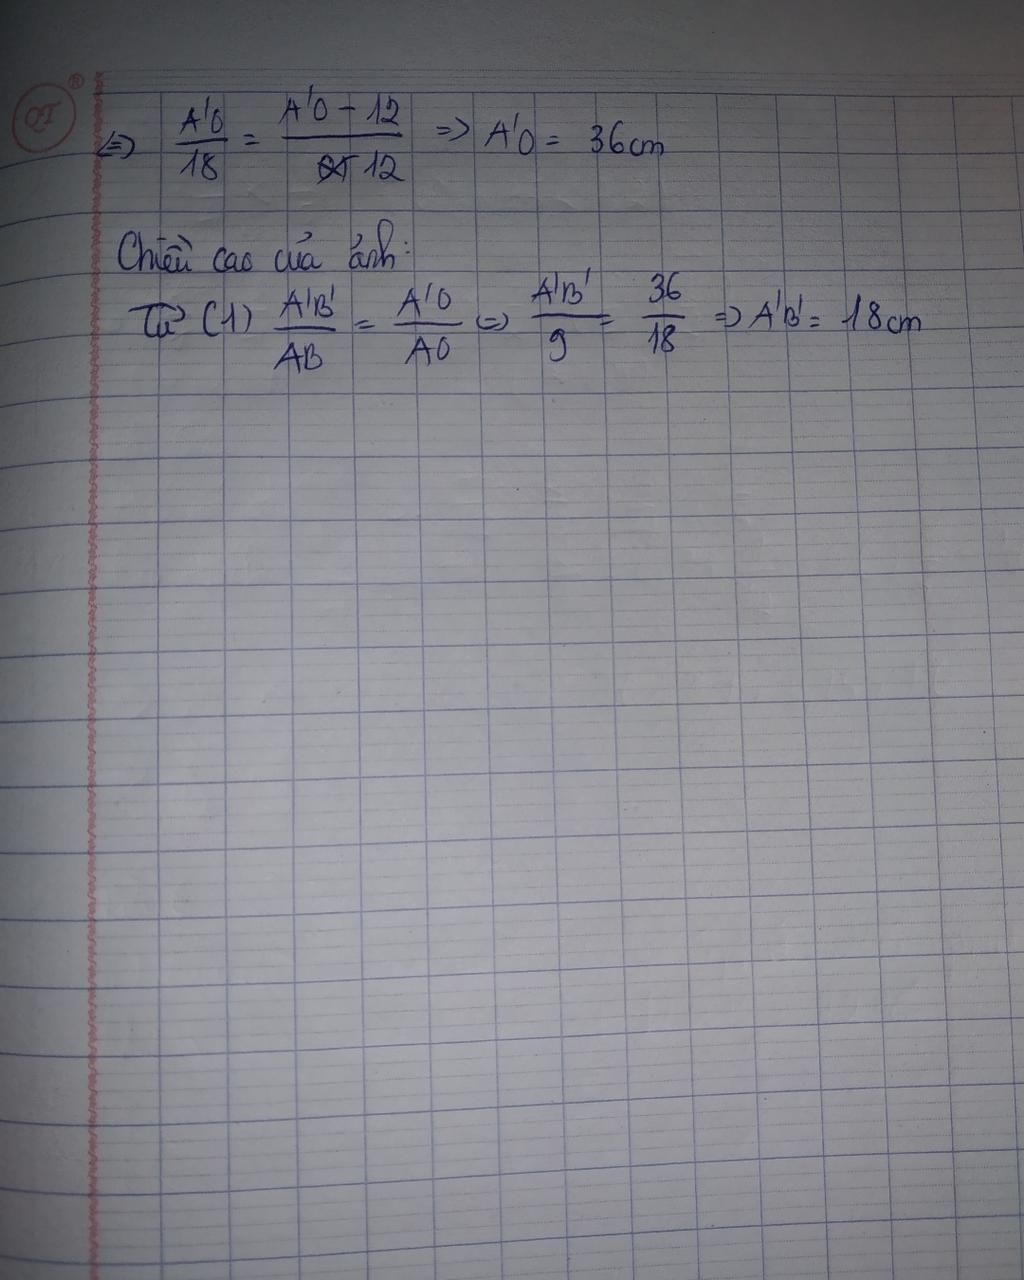 ⇔ A'O/18 = (A'O - 12)/12 ⇒ A'O = 36cm
Chiều cao của ảnh:
Từ (1) A'B'/AB = A'O/AO ⇔ A'B'/9 = 36/18 ⇒ A'B' = 18cm